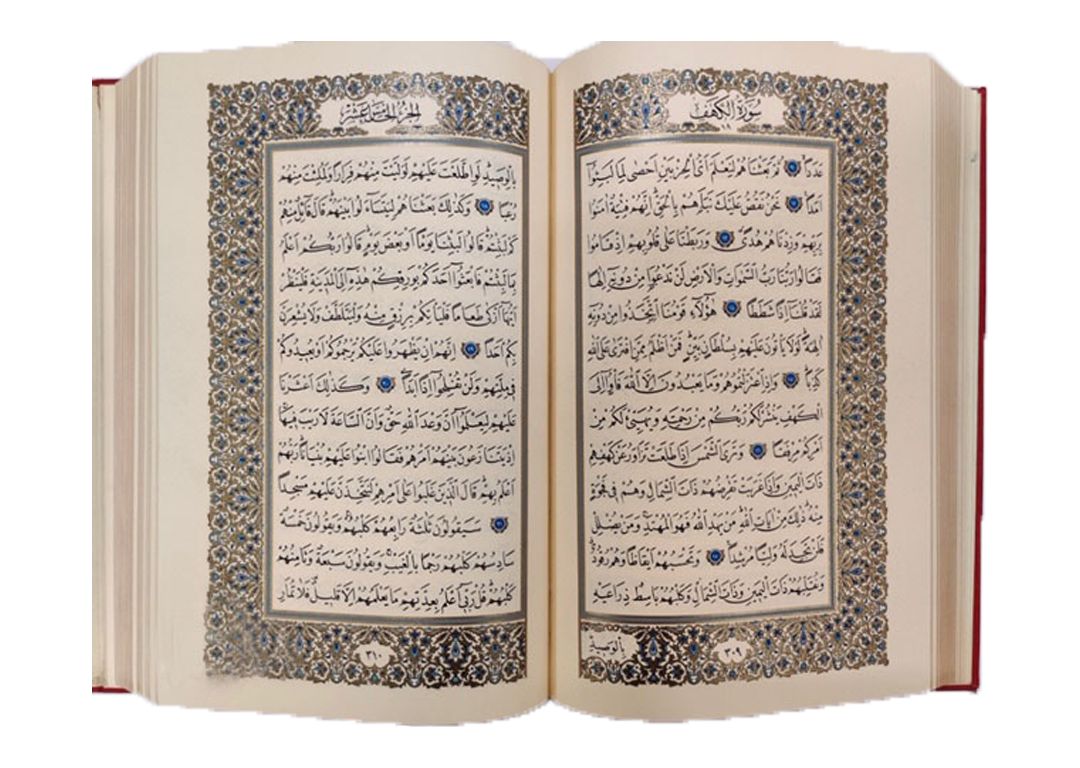 سُورَةُ الْكَهْفِ
١٨
عَدَدًا ثُمَّ بَعَثْنَاهُمْ لِنَعْلَمَ اَيُّ الْحِزْبَيْنِ اَحْصٰى لِمَا لَبِثُوا
اَمَدًا نَحْنُ نَقُصُّ عَلَيْكَ نَبَاَهُمْ بِالْحَقِّ اِنَّهُمْ فِتْيَةٌ اٰمَنُوا
بِرَبِّهِمْ وَزِدْنَاهُمْ هُدًى وَرَبَطْنَا عَلٰى قُلُوبِهِمْ اِذْ قَامُوا
فَقَالُوا رَبُّنَا رَبُّ السَّمٰوَاتِ وَالْاَرْضِ لَنْ نَدْعُوَا مِنْ دُونِهِ اِلٰهًا
لَقَدْ قُلْنَا اِذًا شَطَطًا هٰؤُلَاءِ قَوْمُنَا اتَّخَذُوا مِنْ دُونِهِ
اٰلِهَةً لَوْلَا يَاْتُونَ عَلَيْهِمْ بِسُلْطَانٍ بَيِّنٍ فَمَنْ اَظْلَمُ مِمَّنِ افْتَرٰى عَلَى اللّٰهِ
كَذِبًا وَاِذِ اعْتَزَلْتُمُوهُمْ وَمَا يَعْبُدُونَ اِلَّا اللّٰهَ فَاْوُا اِلَى
الْكَهْفِ يَنْشُرْ لَكُمْ رَبُّكُمْ مِنْ رَحْمَتِهِ وَيُهَيِّئْ لَكُمْ مِنْ
اَمْرِكُمْ مِرْفَقًا وَتَرَى الشَّمْسَ اِذَا طَلَعَتْ تَزَاوَرُ عَنْ كَهْفِهِمْ
ذَاتَ الْيَمِينِ وَاِذَا غَرَبَتْ تَقْرِضُهُمْ ذَاتَ الشِّمَالِ وَهُمْ فِي فَجْوَةٍ
مِنْهُ ذٰلِكَ مِنْ اٰيَاتِ اللّٰهِ مَنْ يَهْدِ اللّٰهُ فَهُوَ الْمُهْتَدِ وَمَنْ يُضْلِلْ
فَلَنْ تَجِدَ لَهُ وَلِيًّا مُرْشِدًا وَتَحْسَبُهُمْ اَيْقَاظًا وَهُمْ رُقُودٌ
وَنُقَلِّبُهُمْ ذَاتَ الْيَمِينِ وَذَاتَ الشِّمَالِ وَكَلْبُهُمْ بَاسِطٌ ذِرَاعَيْهِ
بِالْوَصِيدِ
٣٠٩
الجزء الخامس عشر
بِالْوَصِيدِ لَوِ اطَّلَعْتَ عَلَيْهِمْ لَوَلَّيْتَ مِنْهُمْ فِرَارًا وَلَمُلِئْتَ مِنْهُمْ
رُعْبًا وَكَذٰلِكَ بَعَثْنَاهُمْ لِيَتَسَاءَلُوا بَيْنَهُمْ قَالَ قَائِلٌ مِنْهُمْ
كَمْ لَبِثْتُمْ قَالُوا لَبِثْنَا يَوْمًا اَوْ بَعْضَ يَوْمٍ قَالُوا رَبُّكُمْ اَعْلَمُ
بِمَا لَبِثْتُمْ فَابْعَثُوا اَحَدَكُمْ بِوَرِقِكُمْ هٰذِهِ اِلَى الْمَدِينَةِ فَلْيَنْظُرْ
اَيُّهَا اَزْكٰى طَعَامًا فَلْيَاْتِكُمْ بِرِزْقٍ مِنْهُ وَلْيَتَلَطَّفْ وَلَا يُشْعِرَنَّ
بِكُمْ اَحَدًا اِنَّهُمْ اِنْ يَظْهَرُوا عَلَيْكُمْ يَرْجُمُوكُمْ اَوْ يُعِيدُوكُمْ
فِي مِلَّتِهِمْ وَلَنْ تُفْلِحُوا اِذًا اَبَدًا وَكَذٰلِكَ اَعْثَرْنَا
عَلَيْهِمْ لِيَعْلَمُوا اَنَّ وَعْدَ اللّٰهِ حَقٌّ وَاَنَّ السَّاعَةَ لَا رَيْبَ فِيهَا
اِذْ يَتَنَازَعُونَ بَيْنَهُمْ اَمْرَهُمْ فَقَالُوا ابْنُوا عَلَيْهِمْ بُنْيَانًا رَبُّهُمْ
اَعْلَمُ بِهِمْ قَالَ الَّذِينَ غَلَبُوا عَلٰى اَمْرِهِمْ لَنَتَّخِذَنَّ عَلَيْهِمْ مَسْجِدًا
سَيَقُولُونَ ثَلٰثَةٌ رَابِعُهُمْ كَلْبُهُمْ وَيَقُولُونَ خَمْسَةٌ
سَادِسُهُمْ كَلْبُهُمْ رَجْمًا بِالْغَيْبِ وَيَقُولُونَ سَبْعَةٌ وَثَامِنُهُمْ
كَلْبُهُمْ قُلْ رَبِّي اَعْلَمُ بِعِدَّتِهِمْ مَا يَعْلَمُهُمْ اِلَّا قَلِيلٌ فَلَا تُمَارِ
٣١٠